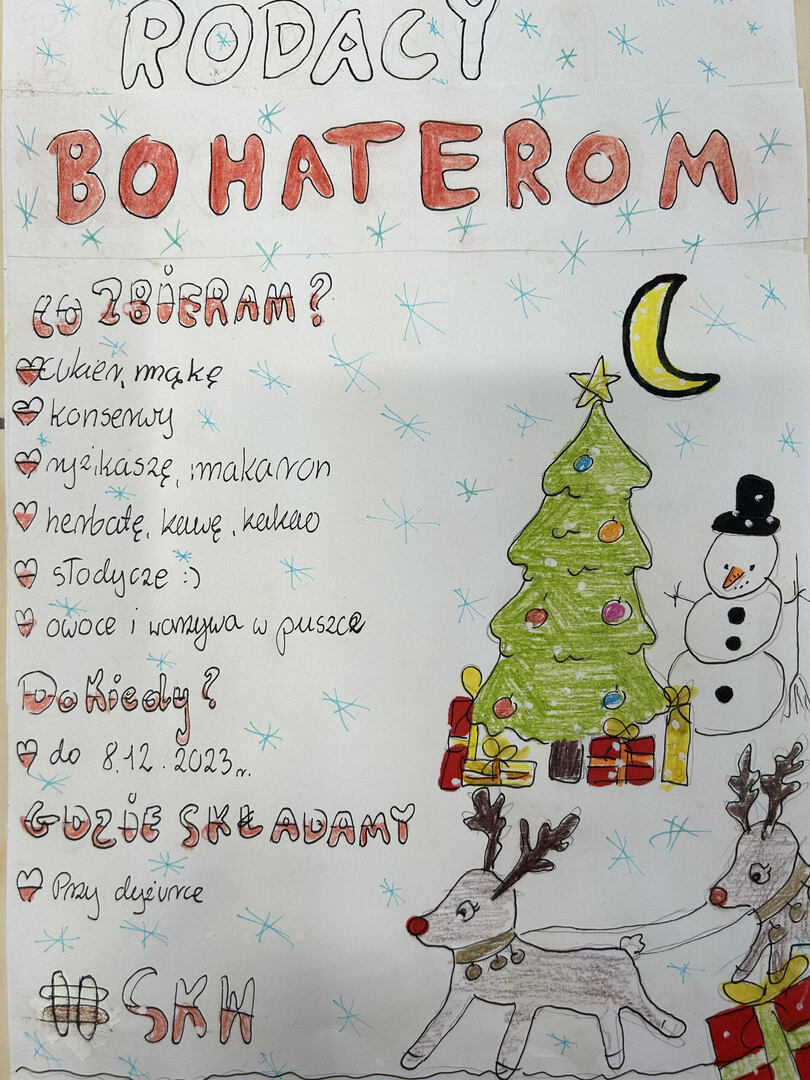 RODACY
BOHATEROM
CO ZBIERAM?
cukier, mąkę
konserwy
ryż, kaszę, makaron
herbatę, kawę, kakao
słodycze :)
owoce i warzywa w puszce
Do Kiedy?
do 8.12.2023r.
GDZIE SKŁADAMY
Przy dyżurce
#SKW